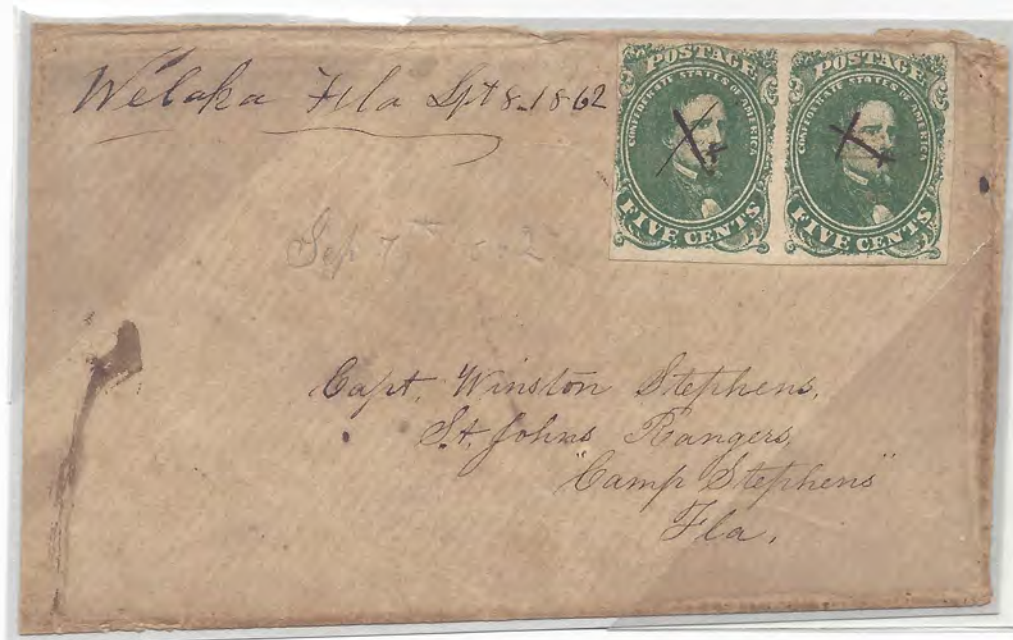 Welaka Fla Spt 8-1862
POSTAGE
CONFEDERATE STATES OF AMERICA
FIVE CENTS
POSTAGE
CONFEDERATE STATES OF AMERICA
FIVE CENTS
Sep 7th
Capt. Winston Stephens,
St. Johns Rangers,
"Camp Stephens"
Fla.